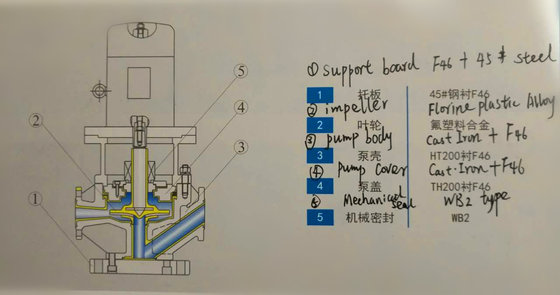 ① support board F46 + 45# steel
1 托板 45#钢衬F46
② impeller Florine plastic Alloy
2 叶轮 氟塑料合金
③ pump body Cast Iron + F46
3 泵壳 HT200衬F46
④ Pump cover Cast Iron + F46
4 泵盖 TH200衬F46
⑤ Mechanical seal WB2 type
5 机械密封 WB2
⑤
④
②
③
①